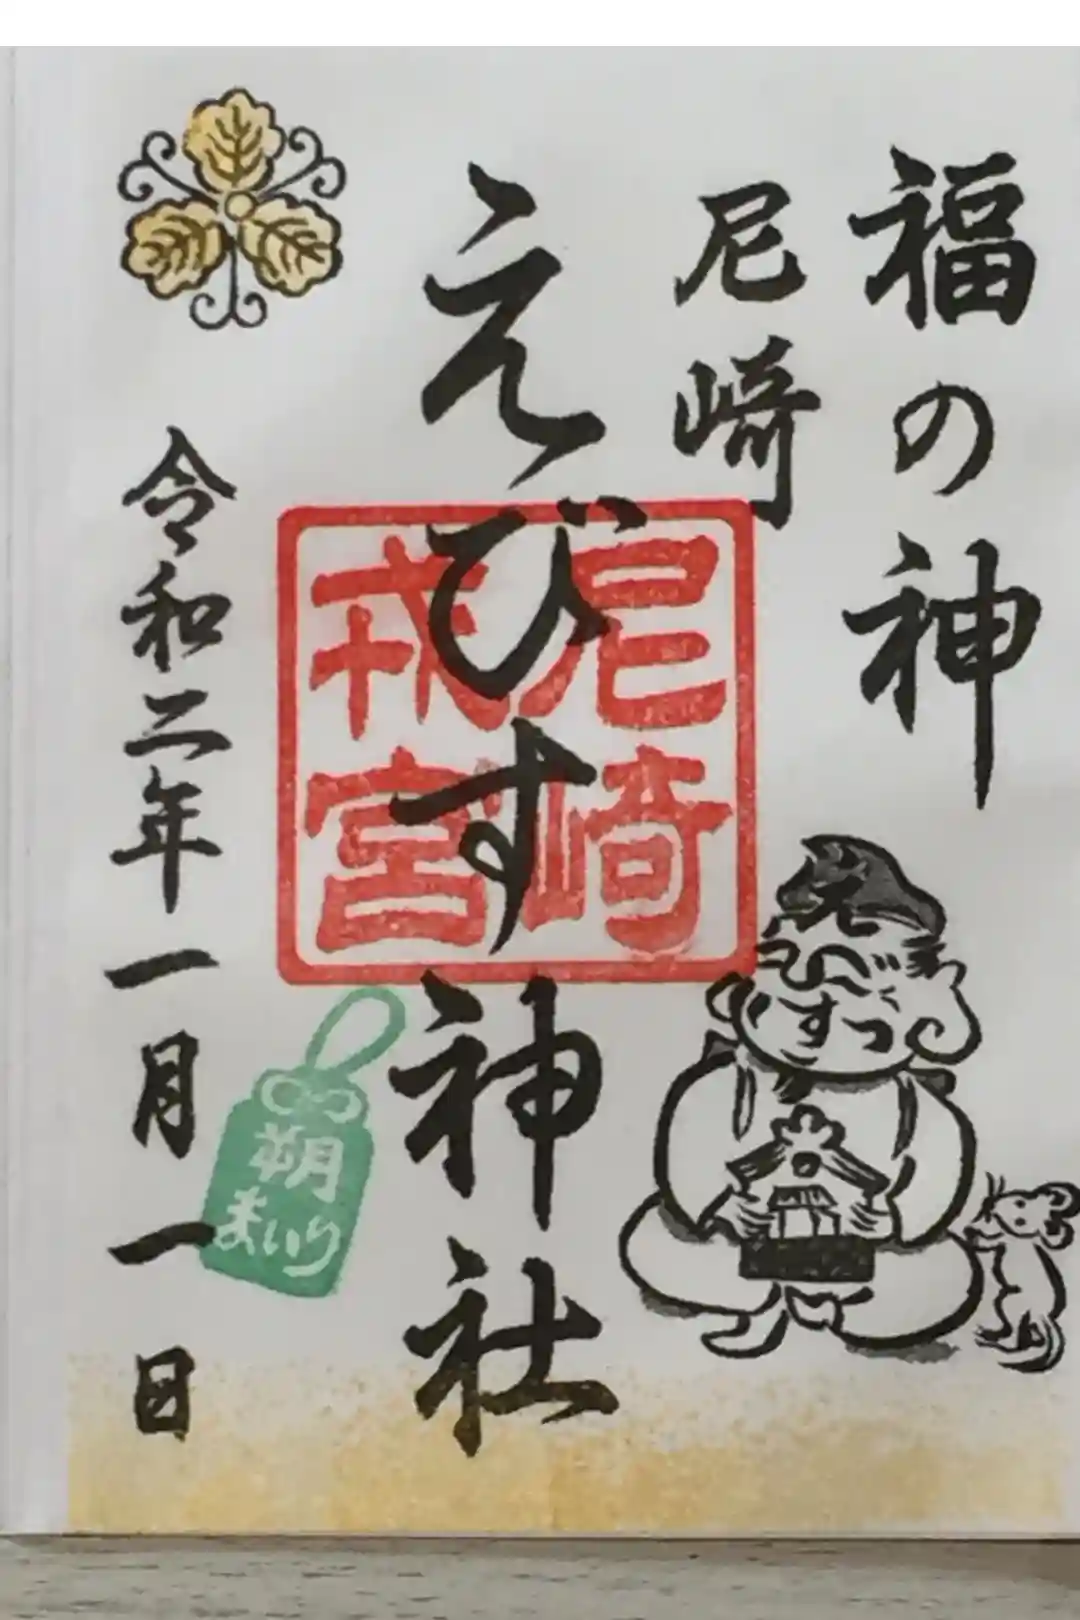 福の神
尼崎
えびす神社
尼崎
戎宮
令和二年一月一日
朔
まいり
えびすっ